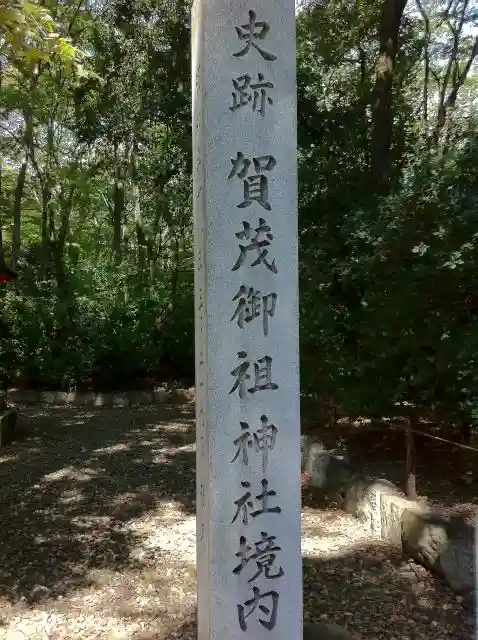 史跡 賀茂御祖神社境内